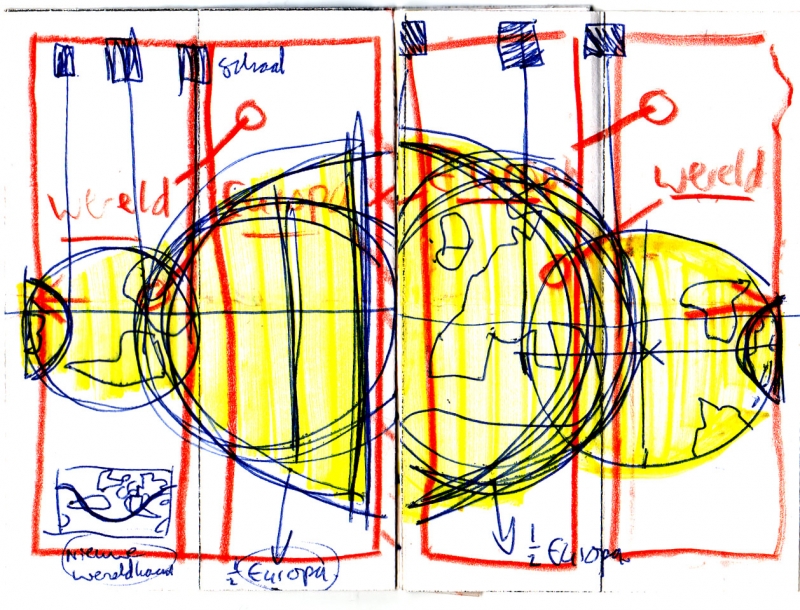 schaal
wereld
Europa
Europa
wereld
Nieuwe
wereldkaart
½ Europa
½ Europa